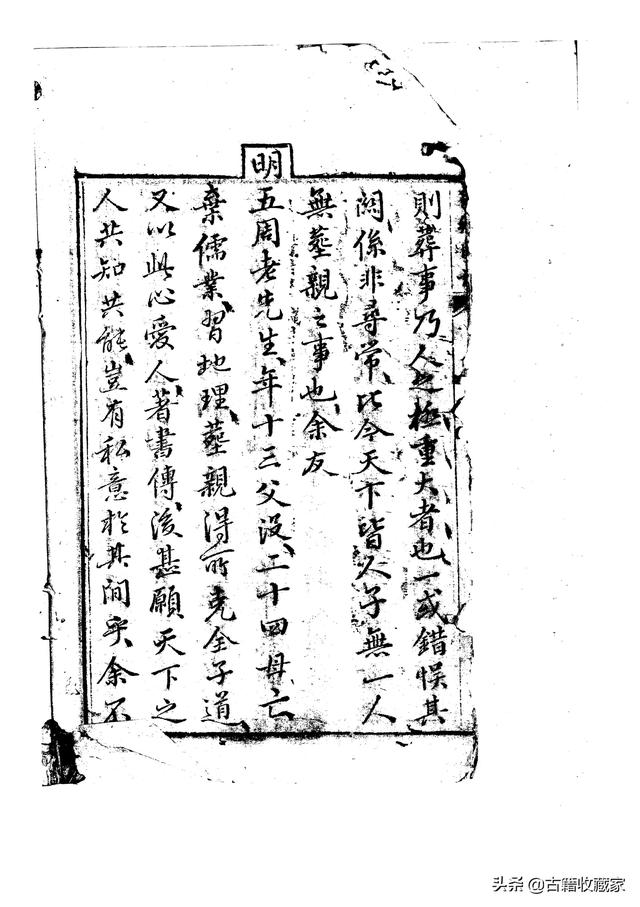 則葬事乃人之極重大者也一或錯悞其
關係非尋常比今天下皆人子無一人
無葬親之事也余友
明
五周老先生年十三父没二十四母亡
棄儒業習地理葬親得所克全子道
又以此心愛人著書傳後甚願天下之
人共知共能豈有私意於其间乎余不
头条 @古籍收藏家